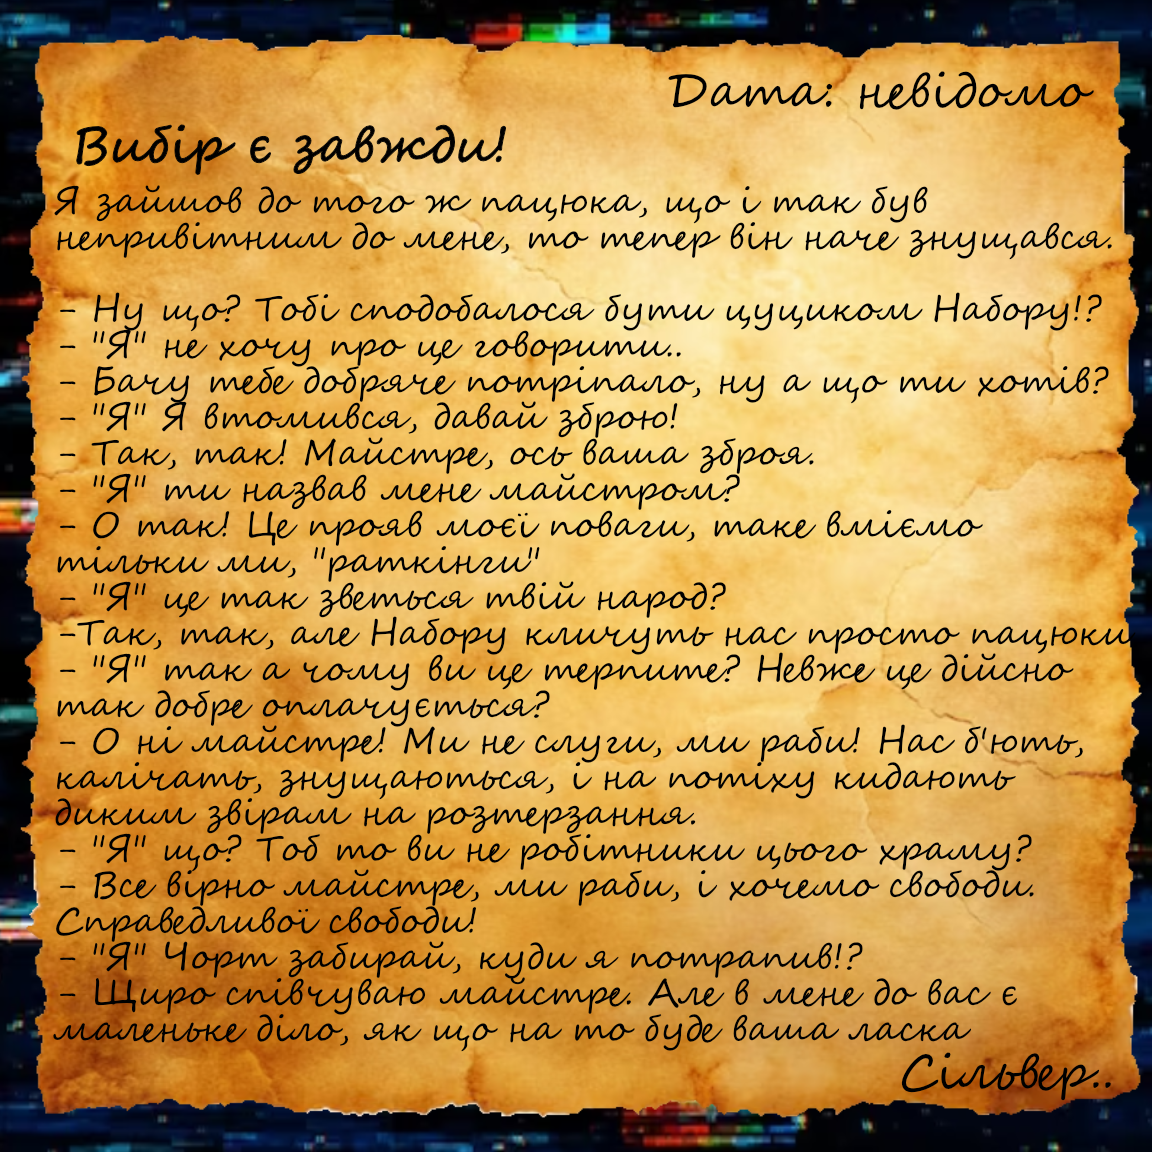 Дата: невідомо
Вибір є завжди!
Я зайшов до того ж пацюка, що і так був
непривітним до мене, то тепер він наче знущався.
- Ну що? Тобі сподобалося бути цуциком Набору!?
- "Я" не хочу про це говорити..
- Бачу тебе добряче потріпало, ну а що ти хотів?
- "Я" Я втомився, давай зброю!
- Так, так! Майстре, ось ваша зброя.
- "Я" ти назвав мене майстром?
- О так! Це прояв моєї поваги, таке вміємо
тільки ми, "раткінги"
- "Я" це так зветься твій народ?
-Так, так, але Набору кличуть нас просто пацюки.
- "Я" так а чому ви це терпите? Невже це дійсно
так добре оплачується?
- О ні майстре! Ми не слуги, ми раби! Нас б'ють,
калічать, знущаються, і на потіху кидають
диким звірам на розтерзання.
- "Я" що? Тоб то ви не робітники цього храму?
- Все вірно майстре, ми раби, і хочемо свободи.
Справедливої свободи!
- "Я" Чорт забирай, куди я потрапив!?
- Щиро співчуваю майстре. Але в мене до вас є
маленьке діло, як що на то буде ваша ласка
Сільвер..